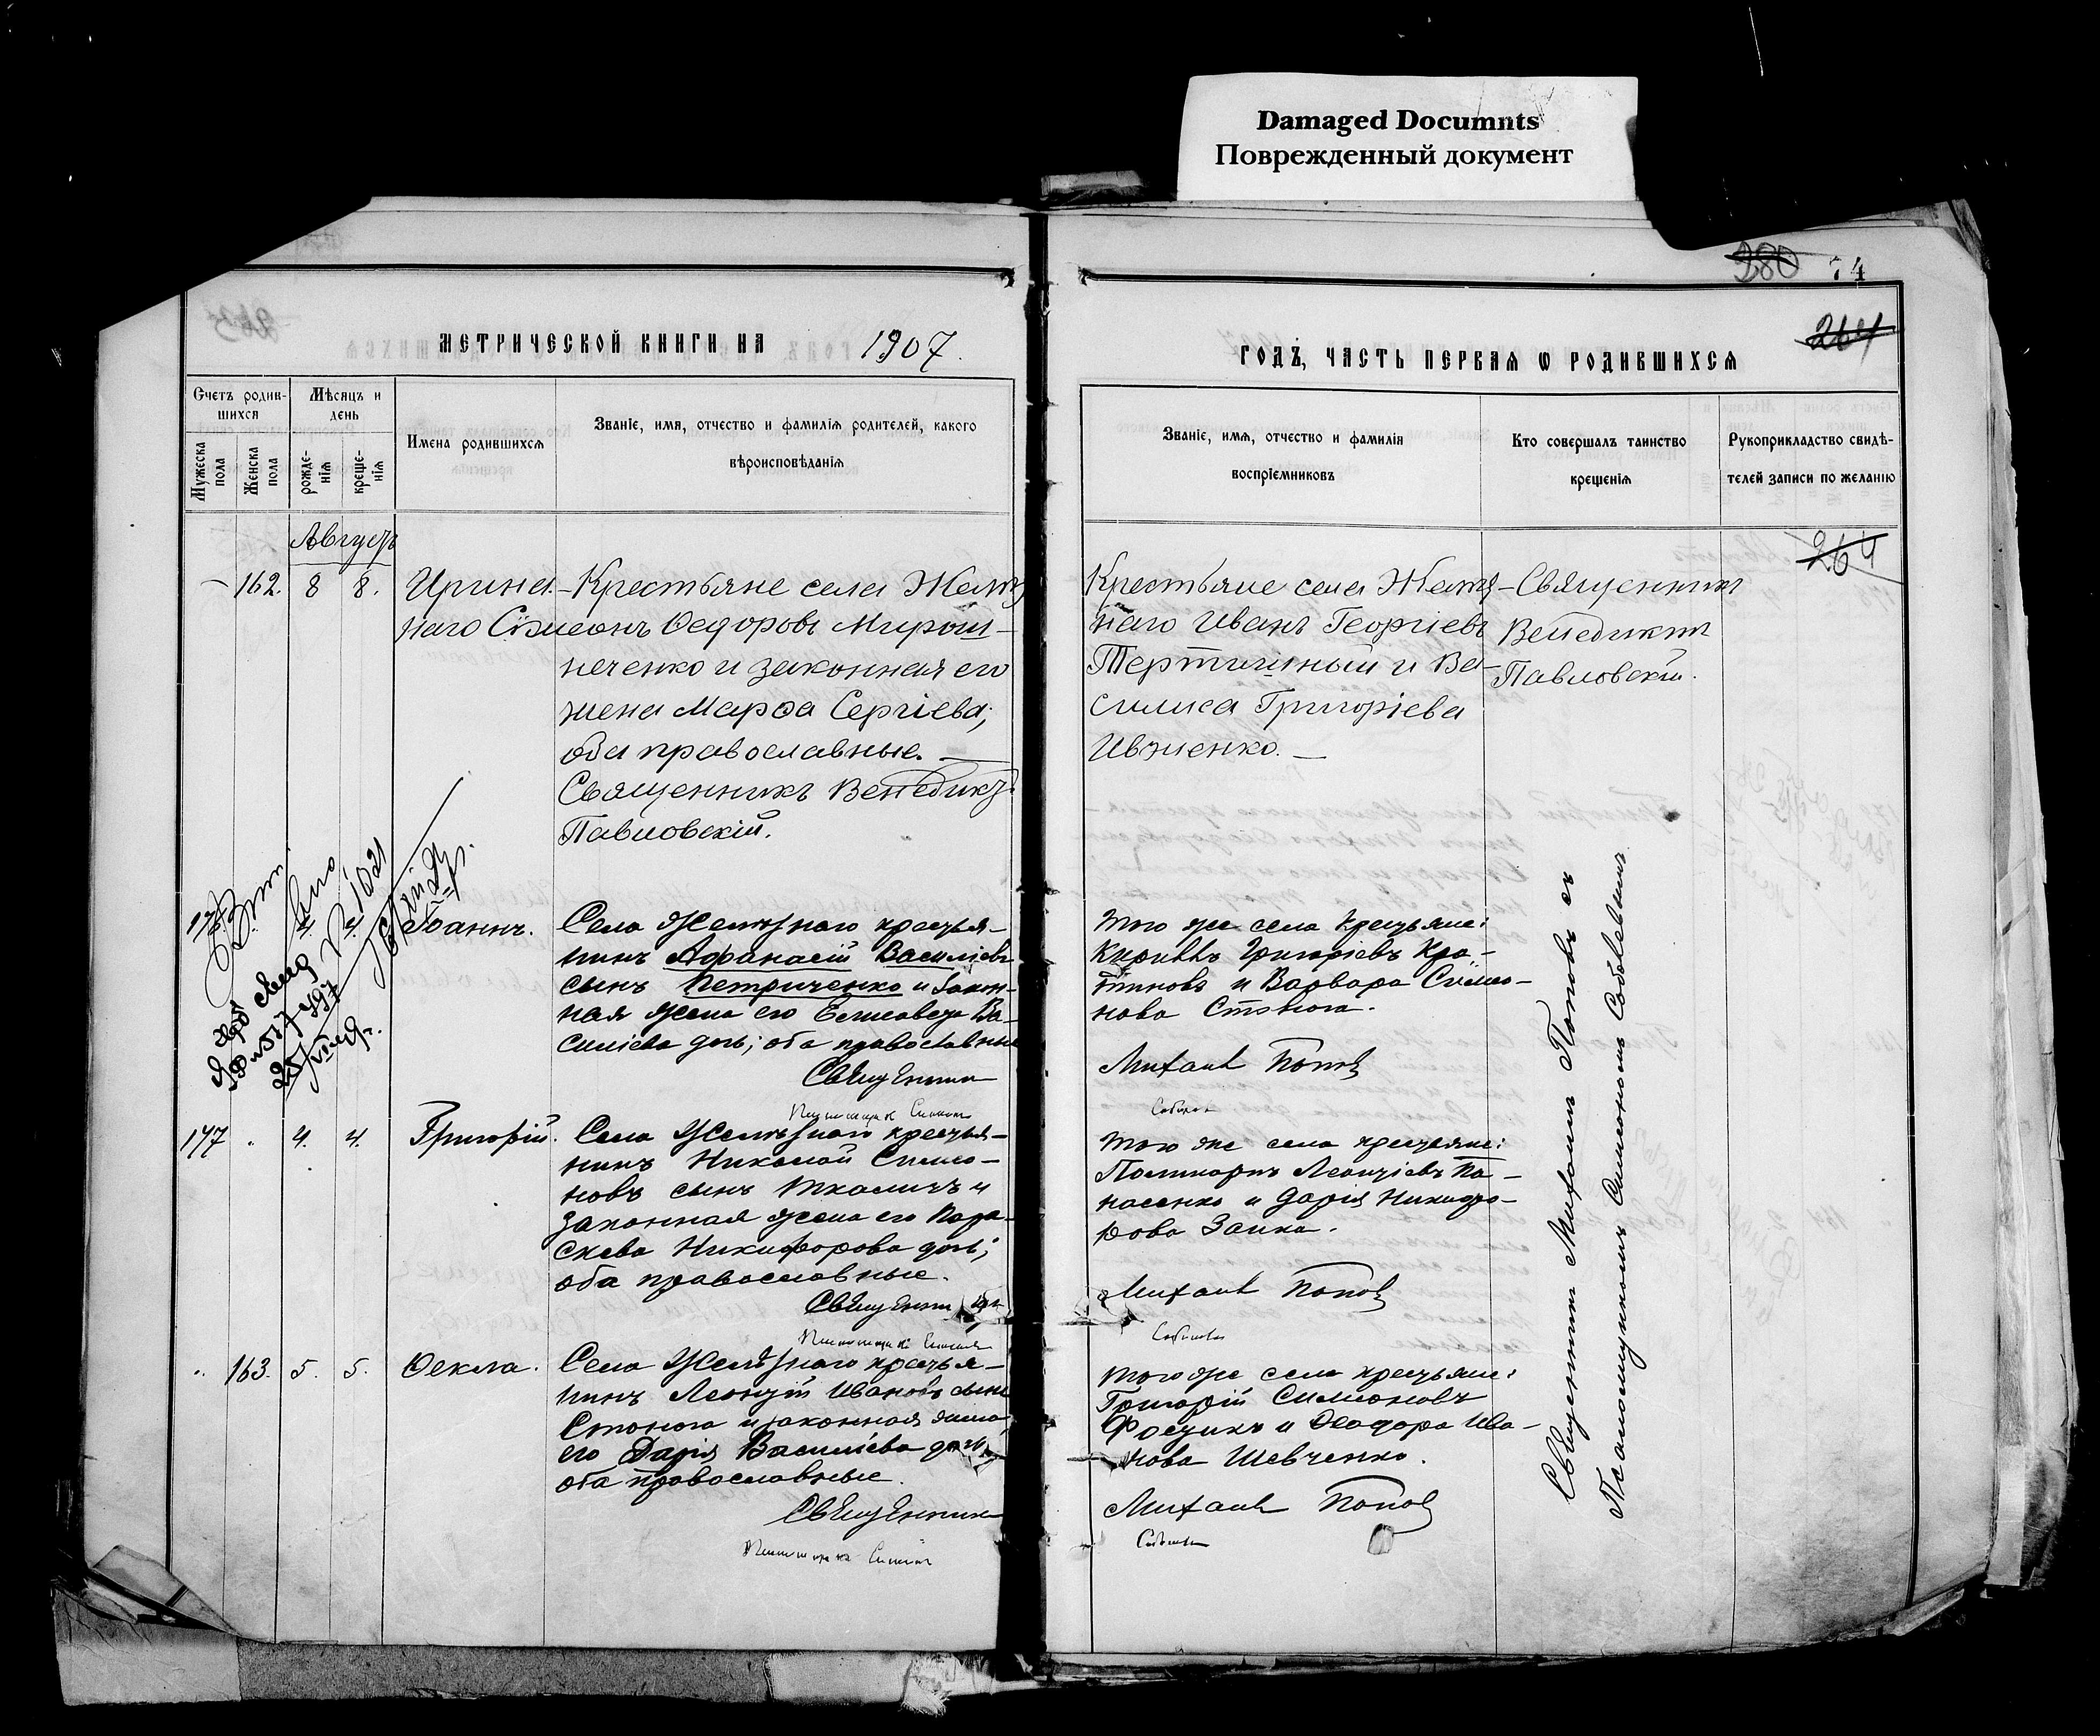 Damaged Documnts
Поврежденный документ
280 74
264
МЕТРИЧЕСКОЙ КНИГИ НА 1907.
ГОДЪ, ЧАСТЬ ПЕРВАЯ Ѡ РОДИВШИХСЯ
Счетъ родив-
шихся
Мѣсяцъ и
день
Мужеска
пола
Женска
пола
рожде-
нія
креще-
нія
Имена родившихся
Званіе, имя, отчество и фамилія родителей, какого
вѣроисповѣданія
Званіе, имя, отчество и фамилія
воспріемниковъ
Кто совершалъ таинство
крещенія
Рукоприкладство свидѣ-
телей записи по желанію
264
Августъ
162. 8 8. Ирина. Крестьяне села Желѣз
наго Сімеонъ Ѳедоровъ Мирош-
ниченко и законная его
жена Марѳа Сергіева;
оба православные.
Священникъ Венедиктъ
Павловскій.
Крестьяне села Желѣз-
наго Иванъ Георгіевъ
Тертишный и Ва-
силиса Григоріева
Ивженко.
Священникъ
Венедиктъ
Павловскій.
4. 4. Іоаннъ.
Села Желѣзнаго крестья-
нинъ Афанасій Василіевъ
сынъ Петриченко и закон-
ная жена его Елисавета Ва-
силіева дочь; оба православные
Священник
Того же села крестьяне:
Кириллъ Григоріевъ
и Варвара Симео-
нова Стонога.
Михаил Попов
147 4. 4. Григорій.
Села Желѣзнаго крестья-
нинъ Николай Симео-
новъ сынъ Ткаличъ и
законная жена его Пара-
скева Никифорова дочь;
оба православные.
Священник
Того же села крестьяне:
Поликарпъ Леонтіевъ Па-
насенко и Дарія Никифо-
рова Заика.
Михаил Попов
163. 5. 5. Ѳекла.
Села Желѣзнаго крестья-
нинъ Леонтій Ивановъ сынъ
Стонога и законная жена
его Дарія Василіева дочь;
оба православные.
Священник
Того же села крестьяне:
Григорій Симеоновъ
и Ѳеодора Ива-
нова Шевченко.
Михаил Попов
Священникъ Михаилъ Поповъ съ
Псаломщикомъ Симеономъ